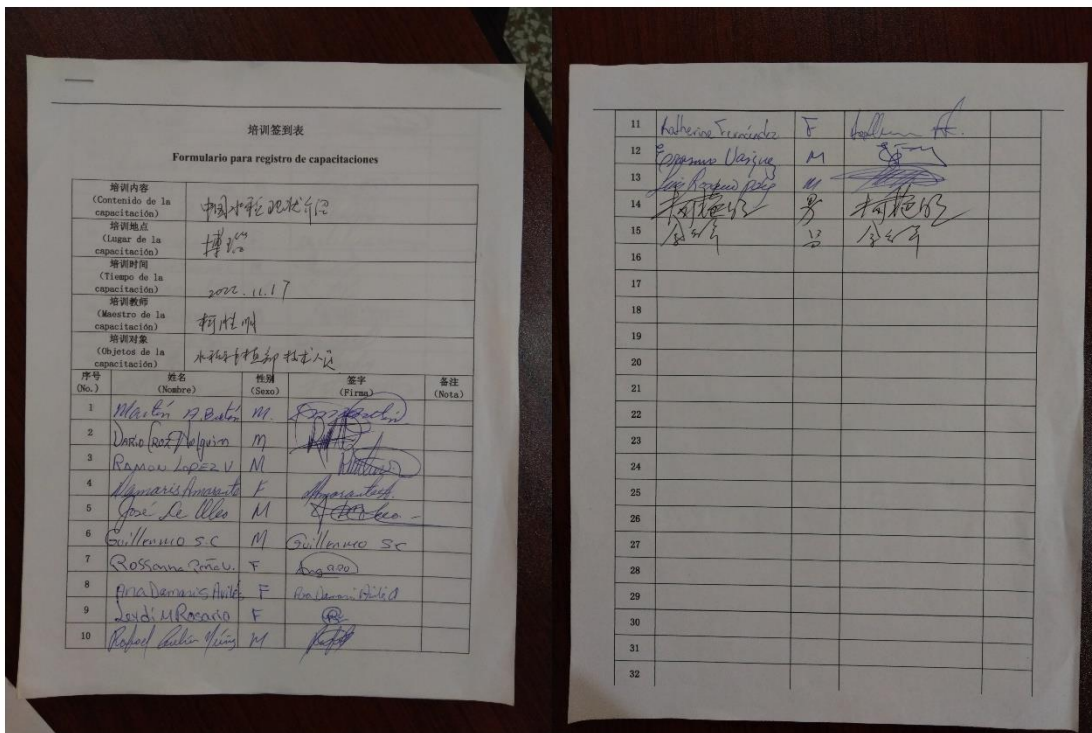 培训签到表
Formulario para registro de capacitaciones
培训内容
(Contenido de la
capacitación)
中国水稻现状介绍
培训地点
(Lugar de la
capacitación)
培训时间
(Tiempo de la
capacitación)
2022.11.17
培训教师
(Maestro de la
capacitación)
柯
培训对象
(Objetos de la
capacitación)
技术人员
序号 姓名 性别 签字 备注
(No.) (Nombre) (Sexo) (Firma) (Nota)
1 Martin M.
2 Dario M
3 RAMON LOPEZ V M
4 Damaris Amarante F
5 José De Oleo M
6 Guillermo S.C M Guillermo S.C
7 Rossanna F
8 Ana Damaris Aviles F Ana Damaris
9 Leydi M Rosario F
10 Rafael M
11 Katherine Fernández F
12 Vásquez M
13 M
14 男
15
16
17
18
19
20
21
22
23
24
25
26
27
28
29
30
31
32